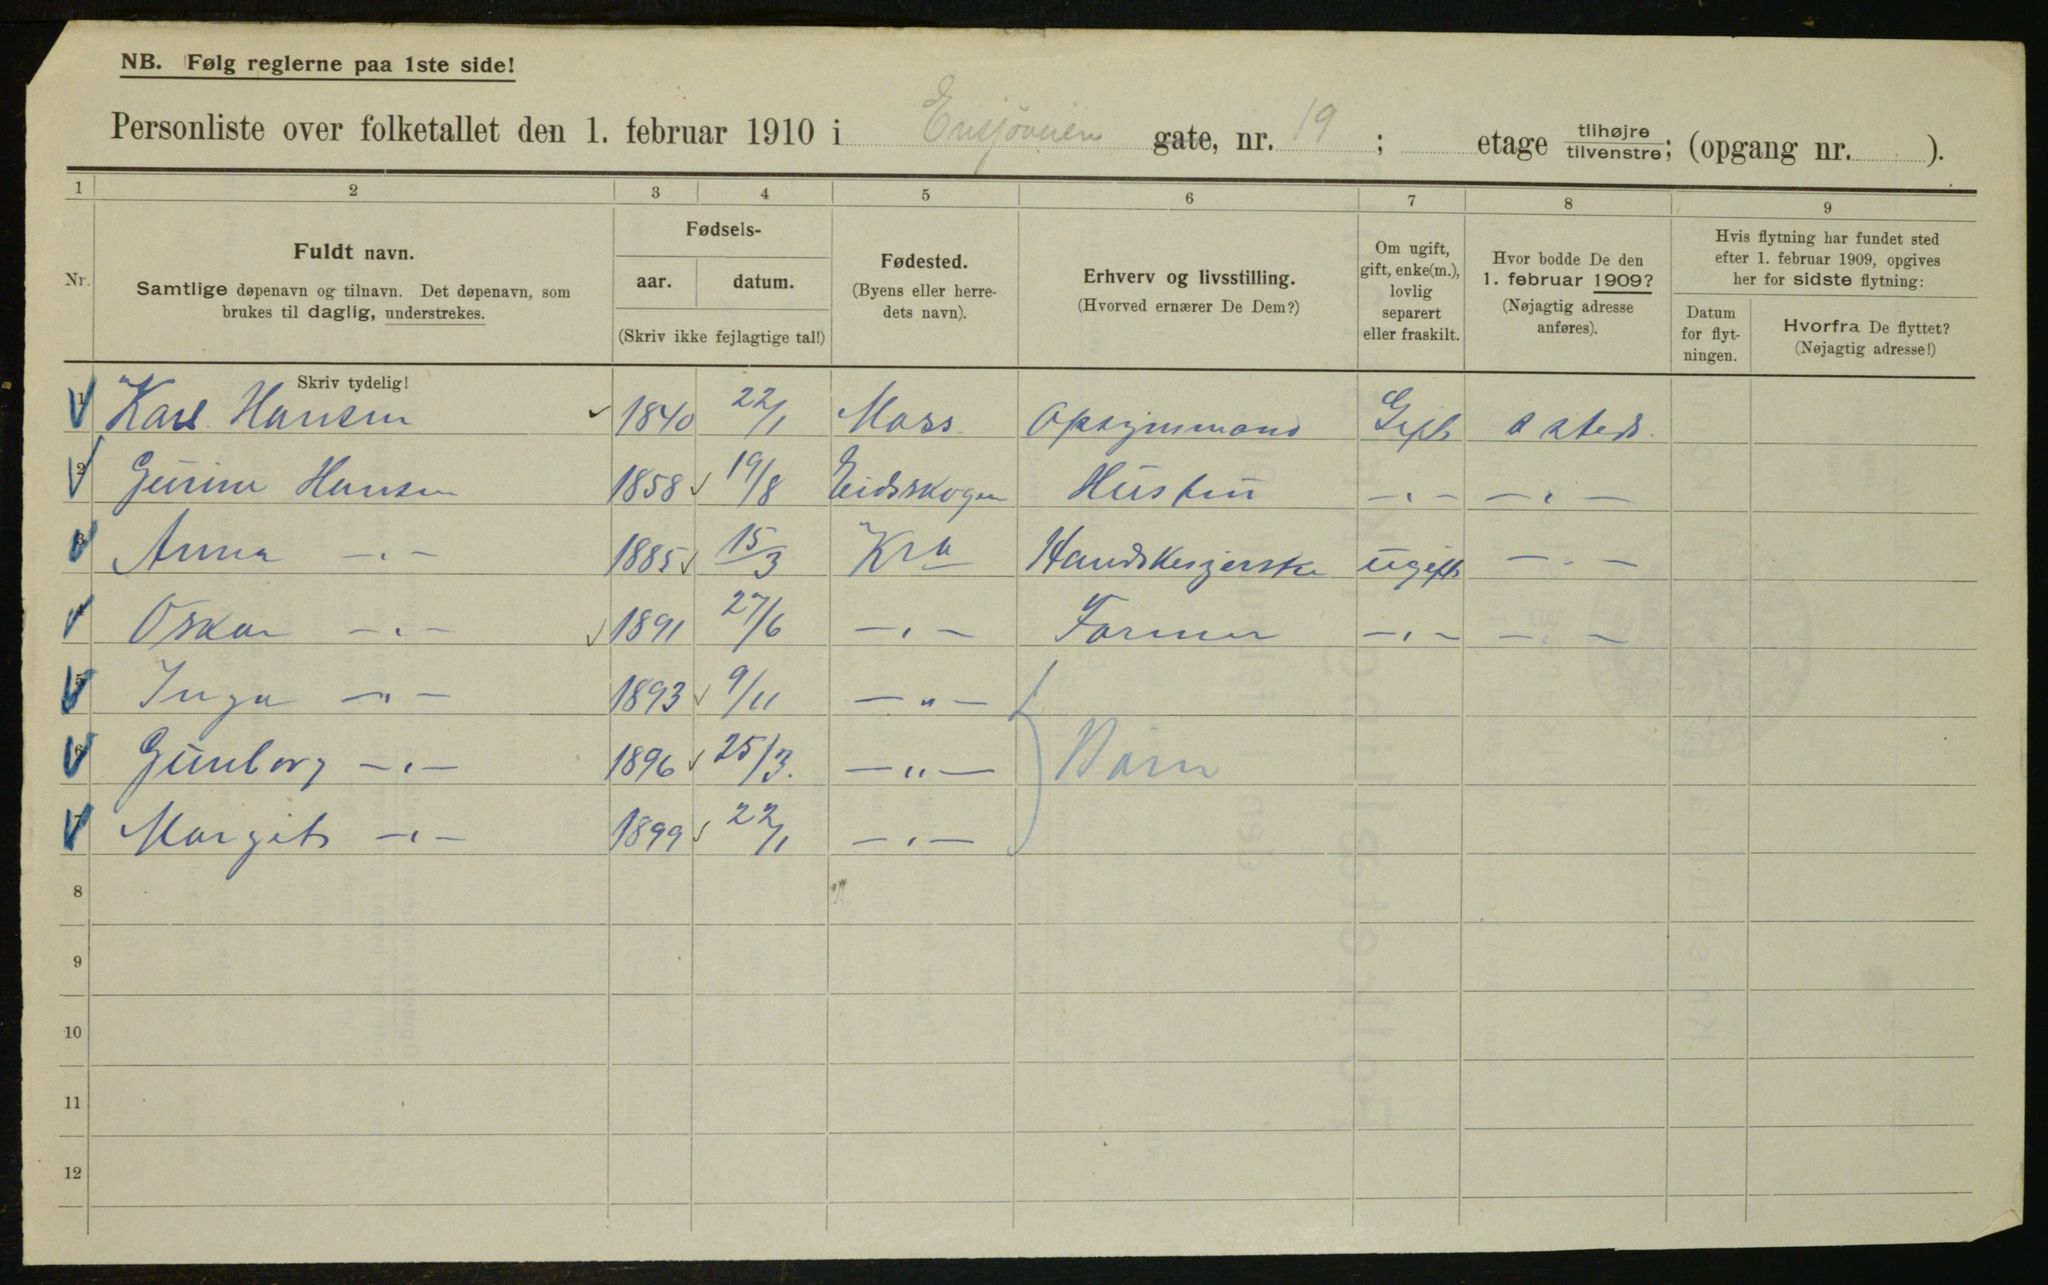 NB. Følg reglerne paa 1ste side!
Personliste over folketallet den 1. februar 1910 i Ensjøveien gate, nr. 19 ; etage tilhøjre tilvenstre; (opgang nr. ).
1 2 3 4 5 6 7 8 9
Nr.
Fuldt navn.
Samtlige døpenavn og tilnavn. Det døpenavn, som
brukes til daglig, understrekes.
Fødsels-
aar. datum.
(Skriv ikke fejlagtige tal!)
Fødested.
(Byens eller herre-
dets navn).
Erhverv og livsstilling.
(Hvorved ernærer De Dem?)
Om ugift,
gift, enke(m.),
lovlig
separert
eller fraskilt.
Hvor bodde De den
1. februar 1909?
(Nøjagtig adresse
anføres).
Hvis flytning har fundet sted
efter 1. februar 1909, opgives
her for sidste flytning:
Datum
for flyt-
ningen.
Hvorfra De flyttet?
(Nøjagtig adresse!)
Skriv tydelig!
1 Karl Hansen 1840 22/1 Moss Opsynsmand Gift s steds.
2 Hansen 1858 19/8 Eidskogen Hustru —〃— —〃—
3 Anna —〃— 1885 15/3 Kra Handskesjerske ugift —〃—
4 Oskar —〃— 1891 27/6 —〃— Former —〃— —〃—
5 Inga —〃— 1893 9/11 —〃—
6 Gunborg —〃— 1896 25/3. —〃— Børn
7 Margit —〃— 1899 22/1 —〃—
8
9
10
11
12